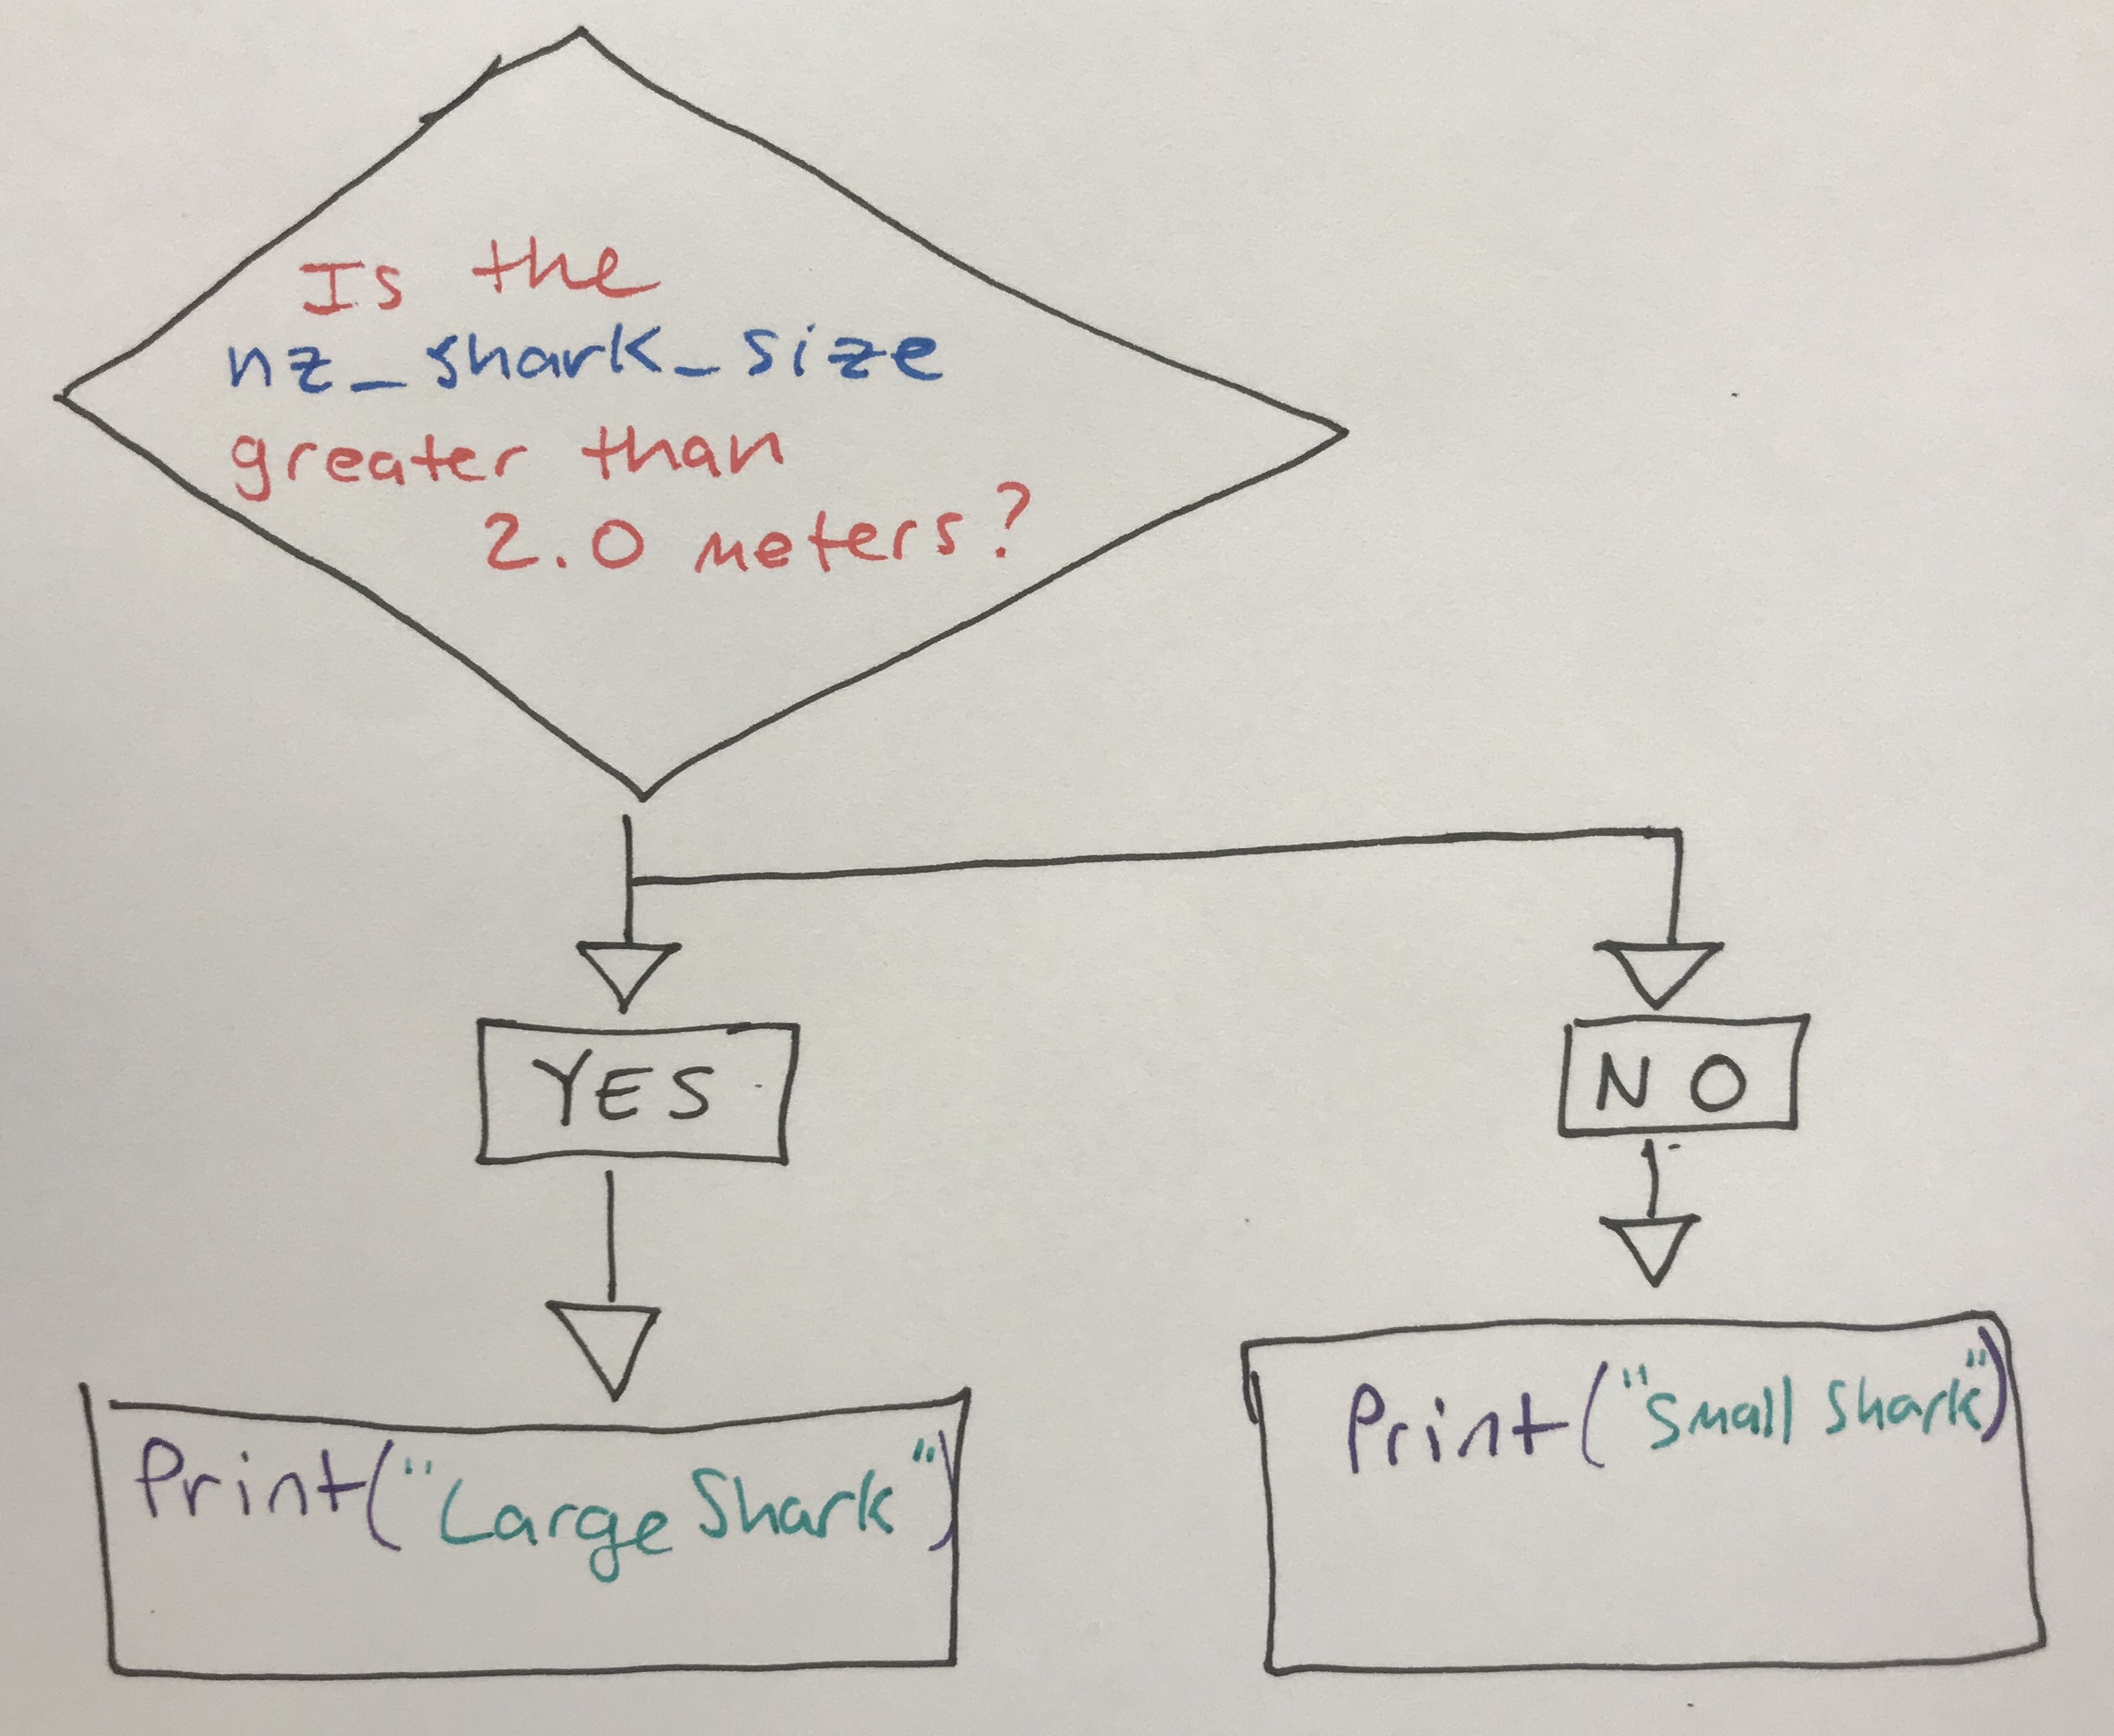 Is the
nz_shark_size
greater than
2.0 meters?
YES
NO
Print("Large Shark")
Print("Small Shark")